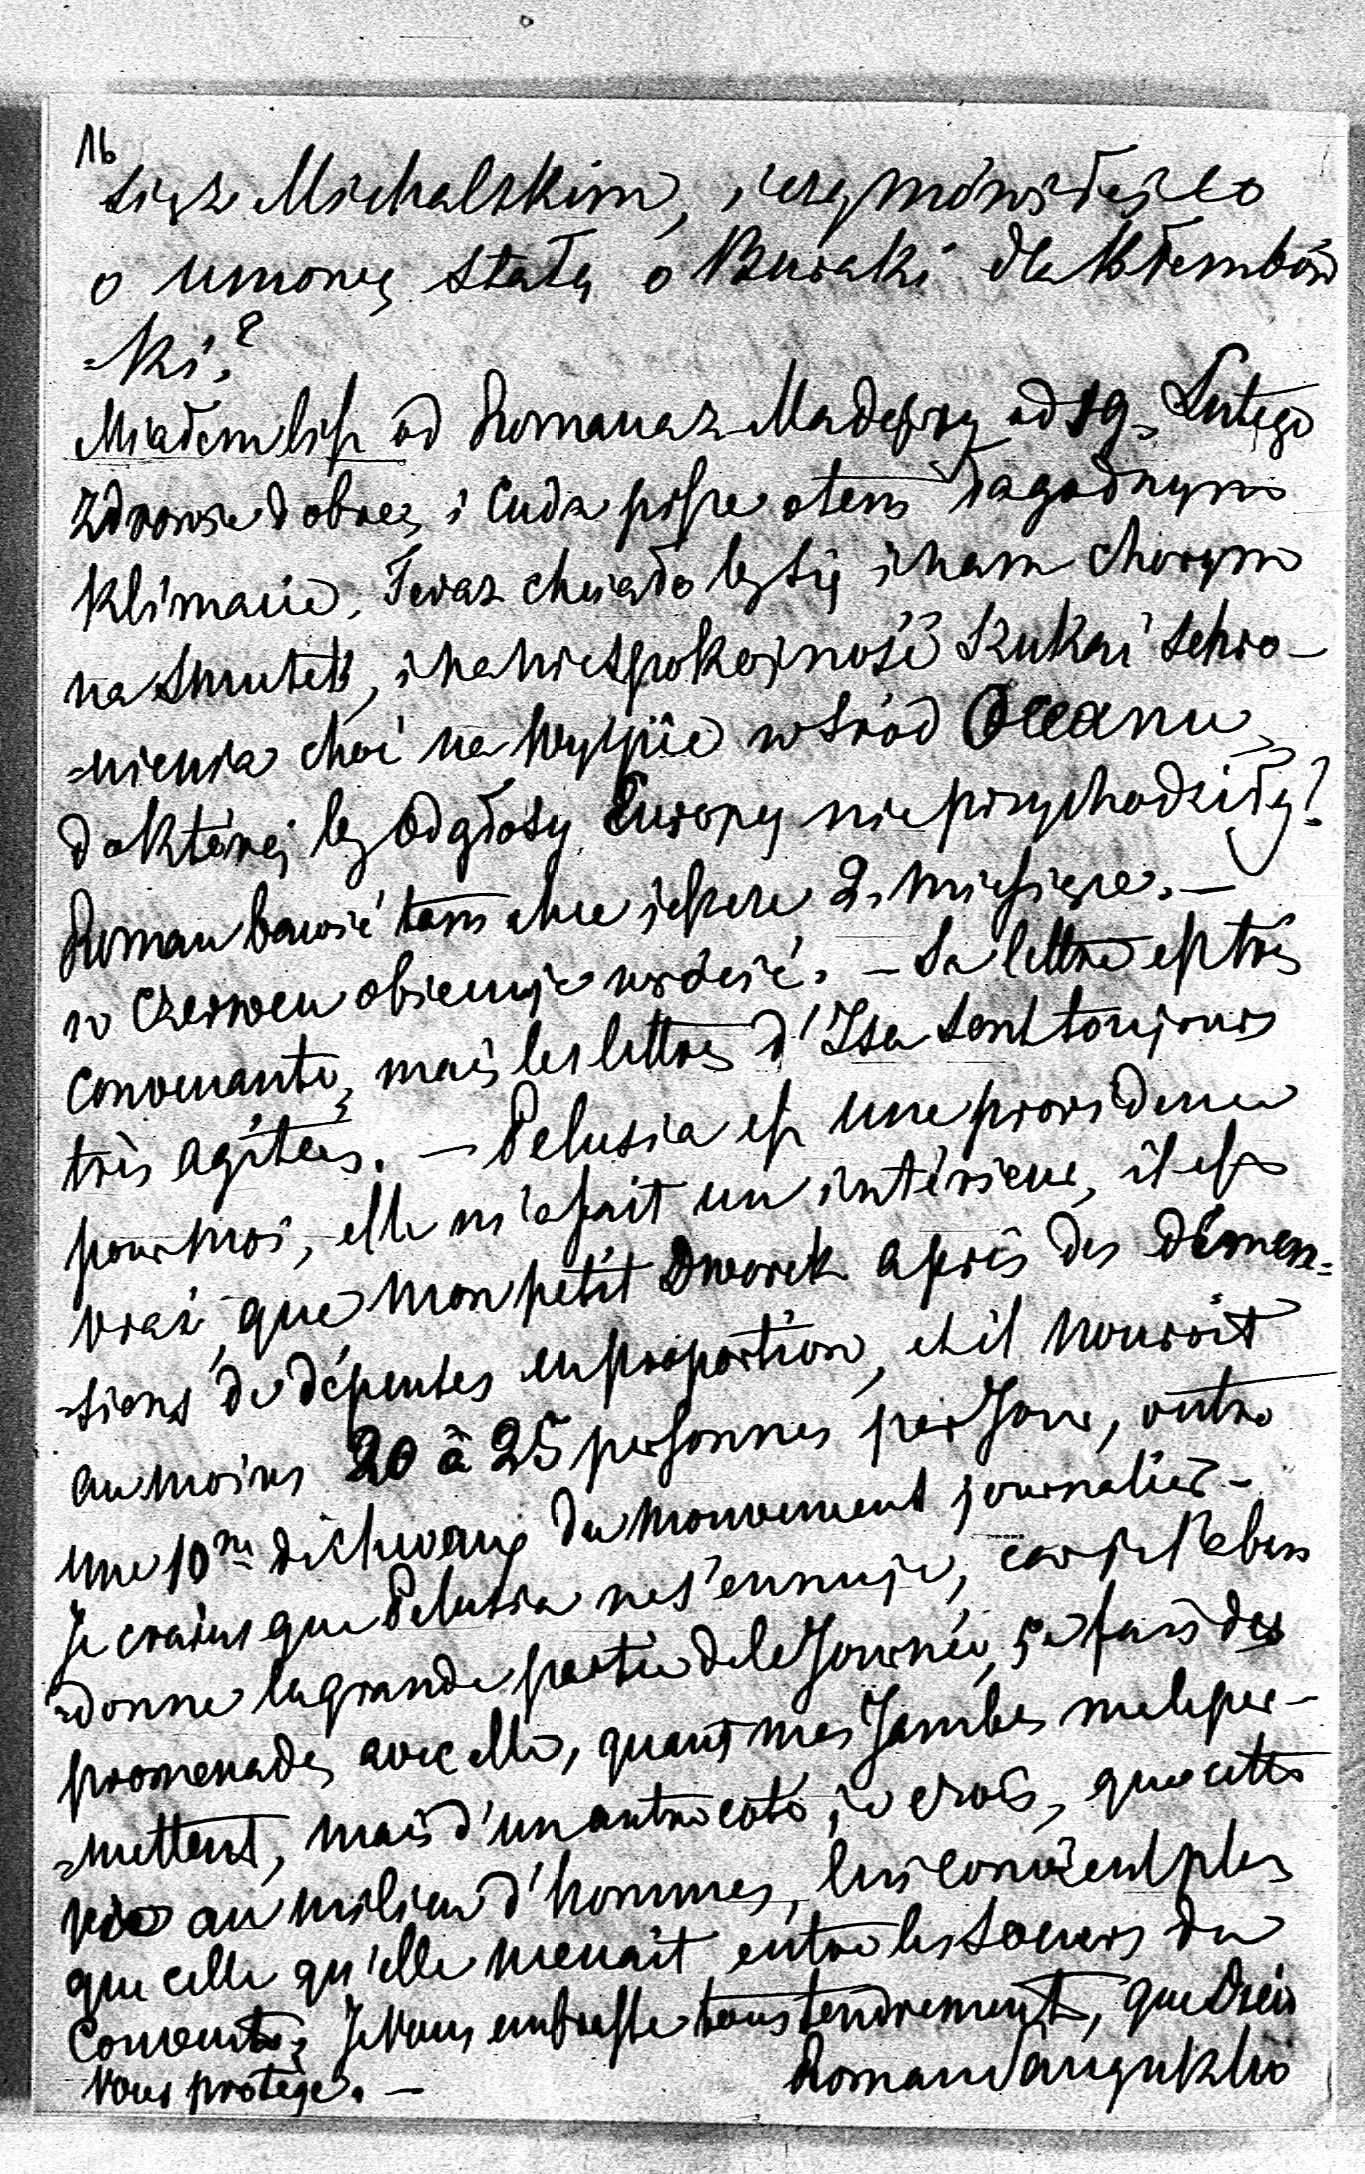 16
się z Michalskim, i czy mówiłeś co
o umowę stałą o Buraki dla Kłembów
=ki?
Miałem list od Romana z Madeyry od 19. Lutego
zdrowie dobre, i Cuda pisze o tem łagodnym
klimacie. Teraz chciało by się i nam chorym
na smutek, i na niespokojność szukać schro-
=nienia choć na wyspie wśród Oceanu,
do której by odgłosy Europy nie przychodziły!
Roman bawić tam chce jeszcze 2. miesiące. —
w Czerwcu obiecuje wrócić. — Sa lettre est très
convenante, mais les lettres d'Isa sont toujours
très agitées. — Pelusia est une providence
pour moi, elle m'a fait un intérieur, il est
vrai, que mon petit Dworek après des dimen=
=sions de dépenses en proportion, et il nourrit
au moins 20 à 25 personnes par Jour, outre
une 10ne de chevaux du mouvement journalier -
Je crains que Pelusia ne s'ennuje, car je l'aban
=donne la grande partie de la Journée, je fais des
promenades avec elle, quand mes Jambes me le per-
=mettent, mais d'un autre coté, je crois, que cette
vie au milieu d'hommes, lui convient plus
que celle qu'elle menait entre les soeurs du
Couvent; Je Vous embrasse tous tendrement, que Dieu
Vous protège. — Roman Sanguszko